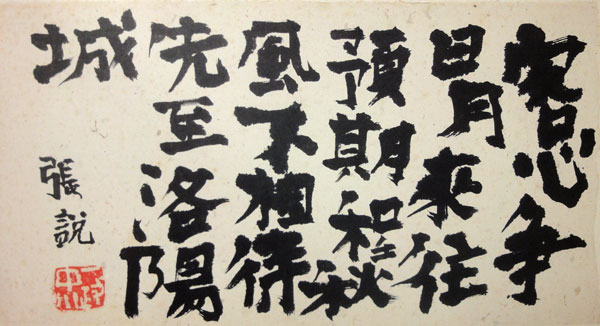 客心争
日月来往
預期程秋
風不相待
先至洛陽
城
張說